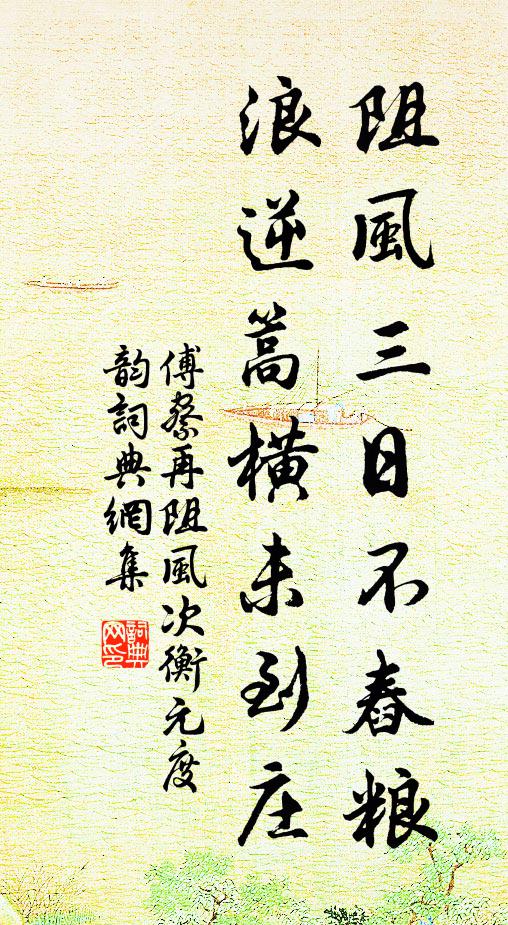 阻風三日不舂粮
浪逆篙橫未到庄
傅察再阻風次衡元度
韵詞典網集
詞典網印